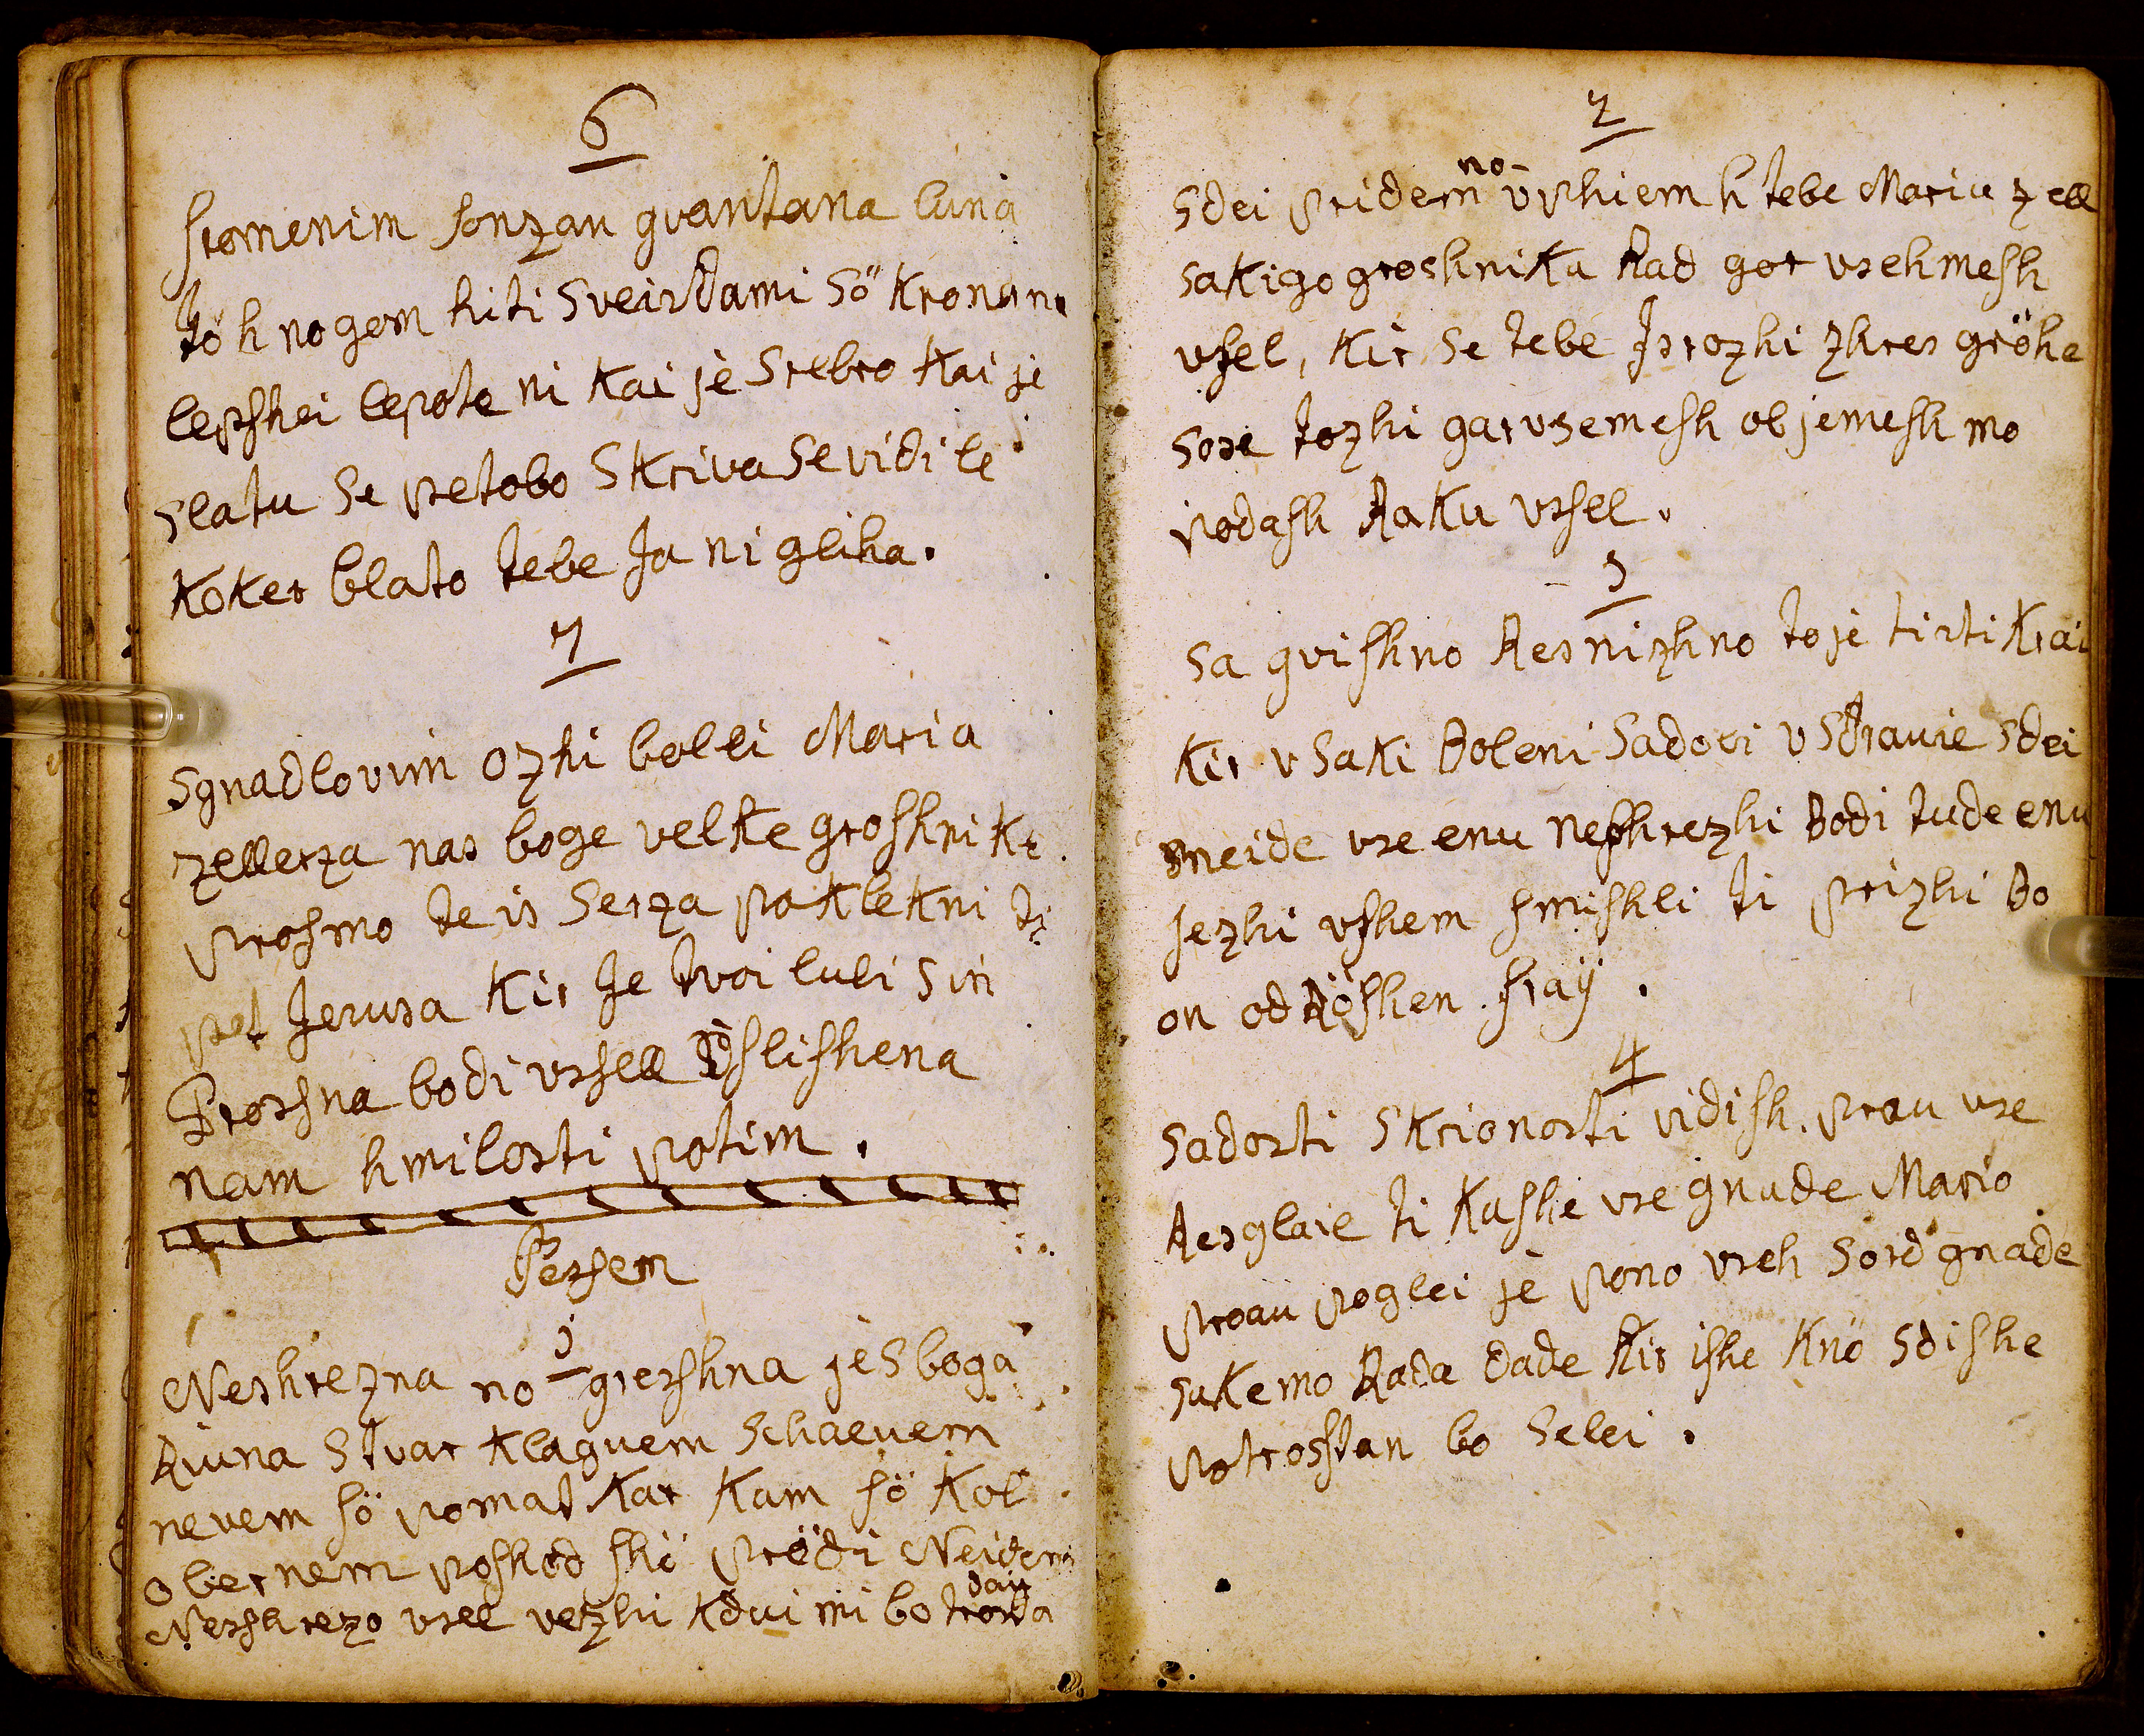 6
stomenim sonzan gvantana luna
tö h nogem hiti Sveisdami sö kronana
lepshei lepote ni kai jè srebro kai je
slatu se pretobo skriva se vidi le
koker blato tebe ja ni gliha.
7
sgnadlovim ozhi bolli Maria
zellerza nas boge velke groshnike
prosmo te is serza poklekni ti
pret Jerusa kir Je tvoi lubi sin
Prosna bodi vsell Vslishena
nam h milosti potim.
Persem
1
Neshrezna no greshna je S boga
Riuna Stvar klaguem Schaluem
nevem sö pomat kar kam sö kol
obernem poshod shö prödi Neidem
dau
Neshrezo vsel vezhi kdui mi bo troda
2
no-
sdei pridem vpshiem h tebe Maria zell
sakigo groshnika Rad gor vsehmesh
vsel, kir se tebe Isrozhi zhres gröhe
sose tozhi garvsemesh objemesh mo
podash Raku vsell.
3
sa gvishno Resnizhno to je tisti krai
kir vsaki Boleni sadovi vsdrauie sdei
mneide vse enu neshrezhi Bodi tude enu
jezhi vshem smishli ti prizhi Bo
on od Röshen fraÿ.
4
sadosti skrionosti vidish. prau vse
Resglaie ti kashe vse gnade Mario
prau poglei jè pono vseh sord gnade
sakemo Rada dade kir ishe knö sdishe
potroshtan bo selei.